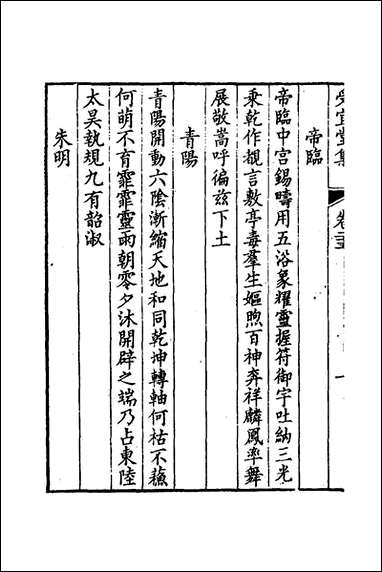 受宜堂集 卷三 一
帝臨
帝臨中宫錫疇用五浴象耀靈握符御宇吐納三光
乘乾作覩言敷亭毒羣生嫗煦百神奔祥麟鳳率舞
展敬嵩呼徧兹下土
青陽
青陽開動六陰漸縮天地和同乾坤轉軸何枯不蘓
何萌不育霏霏靈雨朝零夕沐開辟之端乃占東陸
太昊執規九有韶淑
朱明